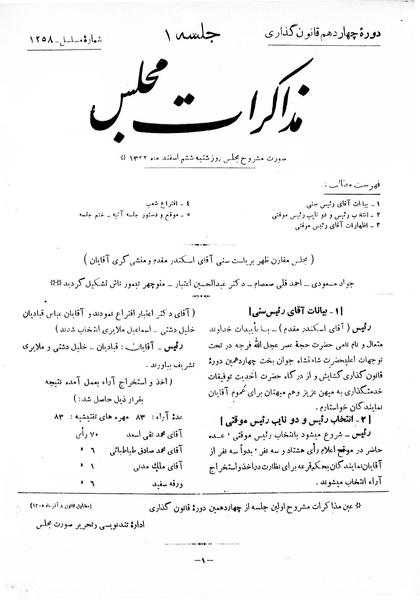 دورهٔ چهاردهم قانون گذاری
جلسه ۱
شمارهٔ مسلسل - ۱۲۵۸
مذاکرات مجلس
صورت مشروح مجلس روز شنبه ششم اسفند ماه ۱۳۲۲ *
فهرست مطالب:
۱ - بیانات آقای رئیس سنی
۲ - انتخاب رئیس و دو نایب رئیس موقتی
۳ - اظهارات آقای رئیس موقتی
۴ - اقتراع شعب
۵ - موقع و دستور جلسه آتیه - ختم جلسه
( مجلس مقارن ظهر بریاست سنی آقای اسکندر مقدم و منشی گری آقایان )
جواد مسعودی - احمد قلی صمصام - دکتر عبدالحسین اعتبار - منوچهر تیمور تاش تشکیل گردید **
[ ۱ - بیانات آقای رئیس سنی ]
رئیس ( آقای اسکندر مقدم ) - با تأییدات خداوند
متعال و نام نامی حضرت حجة عصر عجل الله فرجه در تحت
توجهات اعلیحضرت شاهنشاه جوان بخت چهاردهمین دورهٔ
قانون گذاری گشایش و از درگاه حضرت احدیت توفیقات
خدمتگذاری به میهن عزیز وهم میهنان برای عموم آقایان
نمایندگان خواستارم .
[ ۲ - انتخاب رئیس و دو نایب رئیس موقتی ]
رئیس - شروع میشود بانتخاب رئیس موقتی ، عده
حاضر در موقع اعلام رأی هشتاد و سه نفر ، بدواً سه نفر از
آقایان نمایندگان بحکم قرعه برای نظارت در اخذ و استخراج
آراء انتخاب میشوند .
( آقای دکتر اعتبار اقتراع نمودند و آقایان عباس قبادیان
خلیل دشتی - اسماعیل ملایری انتخاب شدند )
رئیس - آقایان : قبادیان - خلیل دشتی و ملایری
تشریف بیاورند .
( اخذ و استخراج آراء بعمل آمده نتیجه
بقرار ذیل حاصل شد )
عدهٔ آراء : ۸۳ مهره های تفتیشیه : ۸۳
آقای محمد تقی اسعد ۷۰ رأی
آقای محمد صادق طباطبائی ۶ »
آقای ملک مدنی ۱ »
ورقه سفید ۶ »
* عین مذاکرات مشروح اولین جلسه از چهاردهمین دورهٔ قانون گذاری
(مطابق قانون ۸ آذرماه ۱۳۰۵)
ادارهٔ تندنویسی و تحریر صورت مجلس
- ۱ -